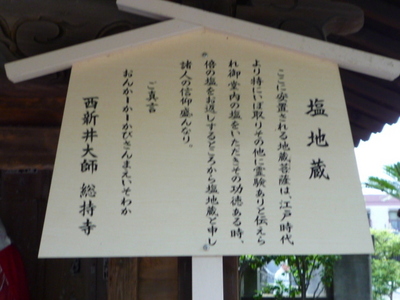 塩地蔵
ここに安置される地蔵菩薩は、江戸時代
より特にいぼ取りその他に霊験ありと伝えら
れ御堂内の塩をいただきその功徳ある時、
倍の塩をお返しするところから塩地蔵と申し
諸人の信仰盛んなり。
ご真言
おんかーかーかびさんまえいそわか
西新井大師 総持寺